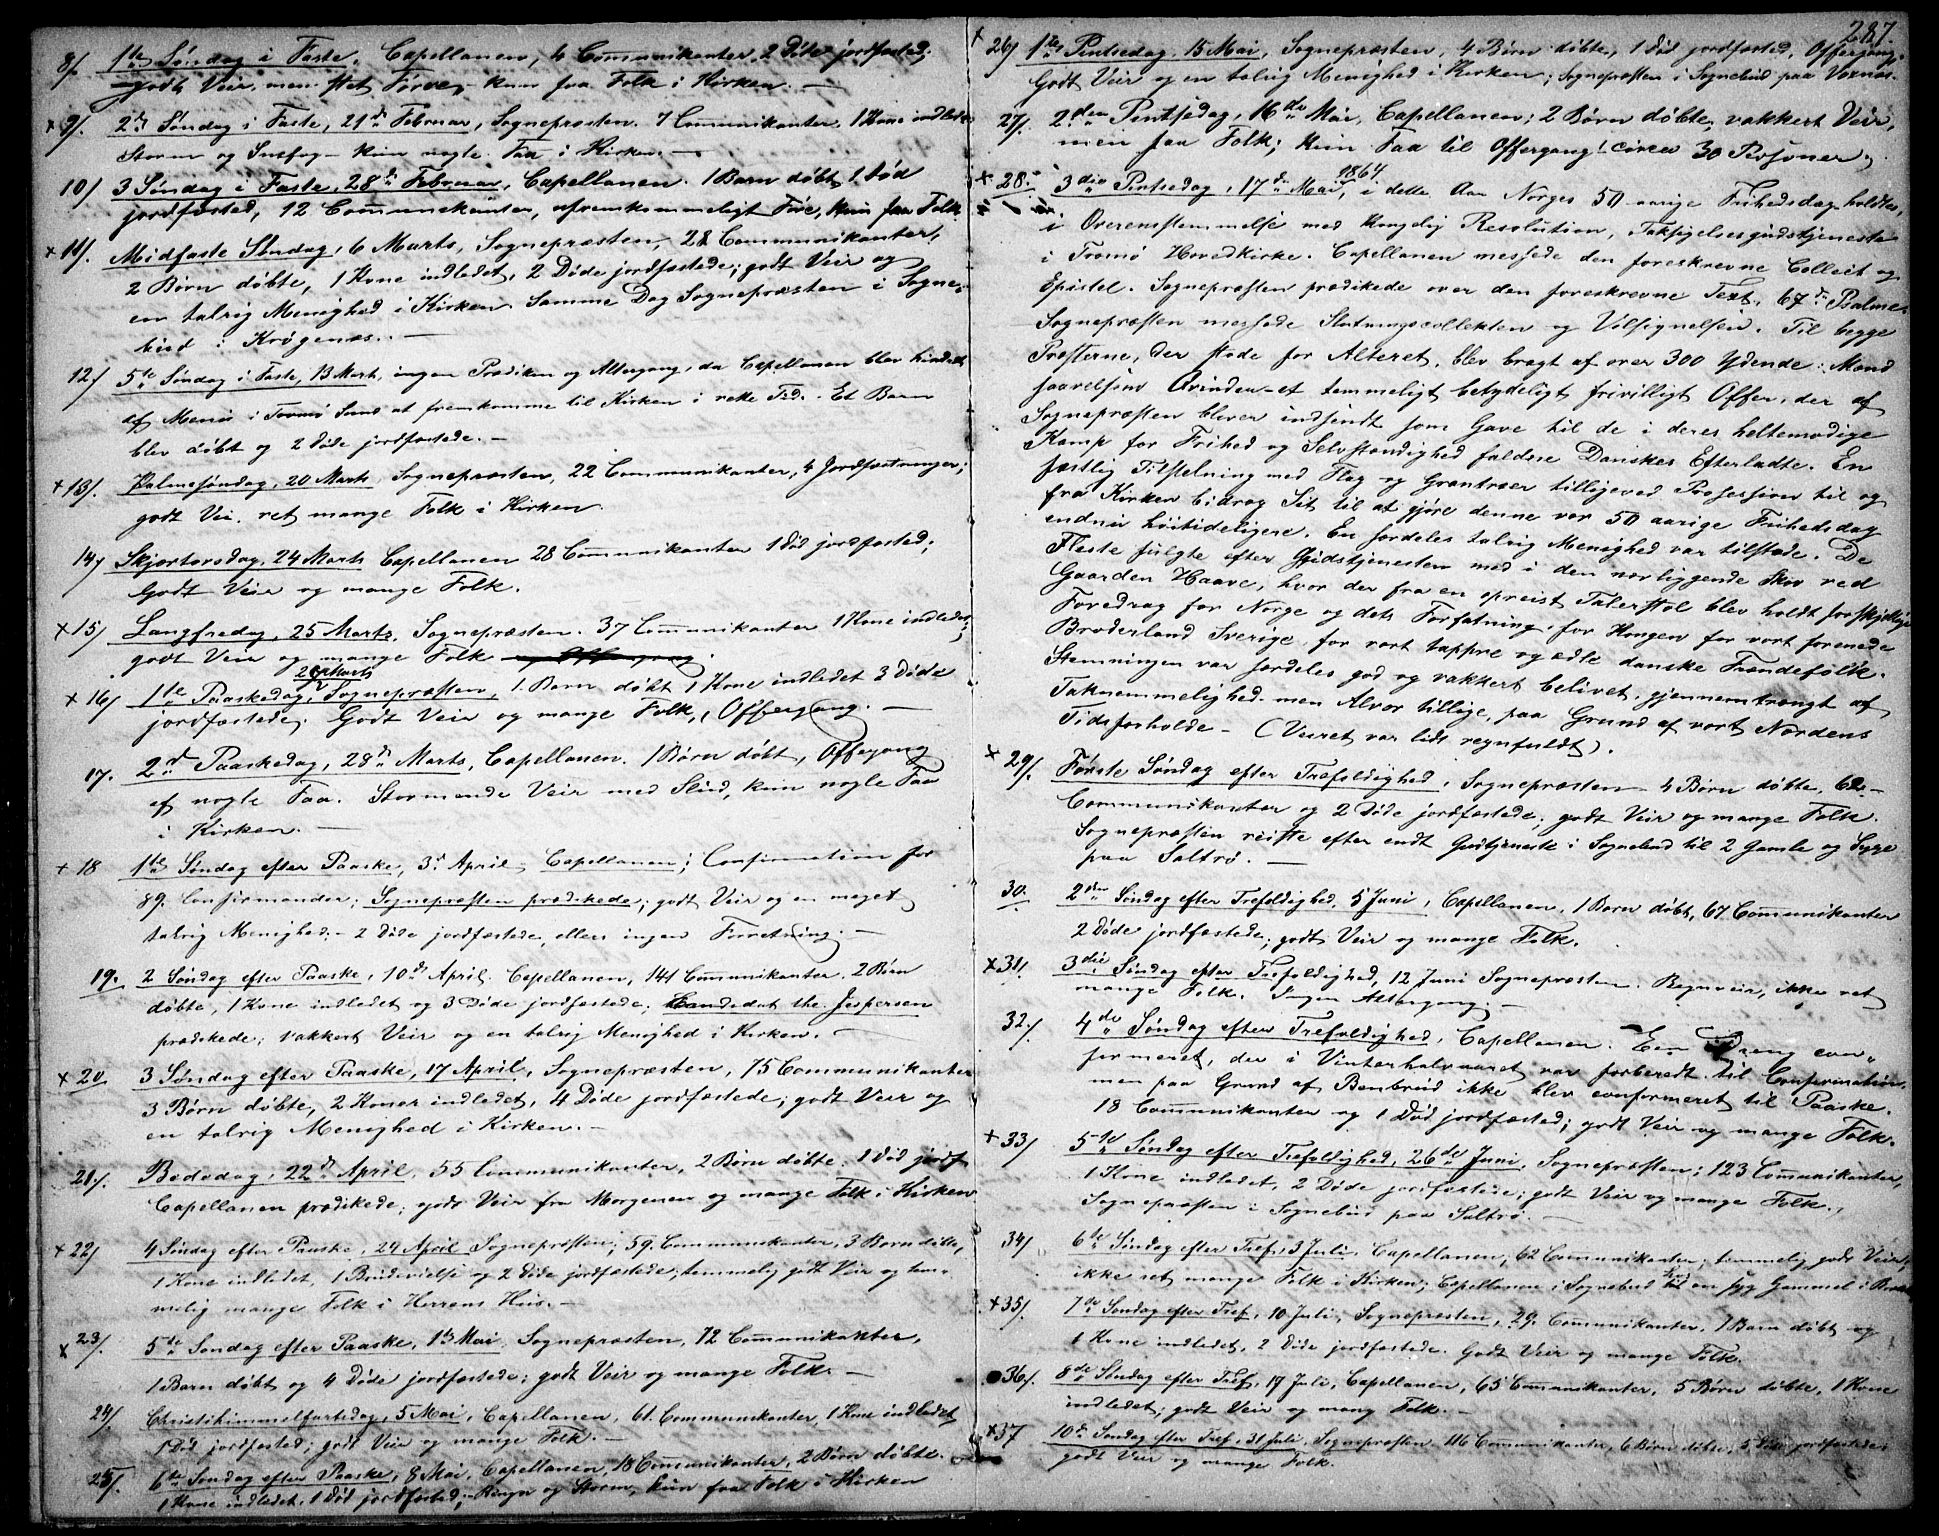 8/. 1te Søndag i Faste, Capellanen, 4 Communikanter, 2 Døde jordfæstede;
godt Veir, men slet Føre, kun faa Folk i Kirken. —
x 9/. 2den Søndag i Faste, 21de Februar, Sognepræsten. 7 Communikanter. 1 Kone indledet
Storm og Snefog – kun nogle Faa i Kirken. —
10/ 3 Søndag i Faste, 28de Februar, Capellanen. 1 Barn døbt 1 død
jordfæstet, 12 Communikanter, ufremkommeligt Føre, kun faa Folk.
x 11/. Midfaste Søndag, 6 Marts, Sognepræsten, 28 Communikanter,
2 Børn døbte, 1 Kone indledet, 2 Døde jordfæstede; godt Veir og
en talrig Menighed i Kirken. Samme Dag Sognepræsten i Sogne-
bud i Krøgenæs. —
12/ 5te Søndag i Faste, 13 Mart, ingen Prædiken og Altergang, da Capellanen blev hindret
af Menis i Tromø Sund at fremkomme til Kirken i rette Tid. Et Barn
blev døbt og 2 døde jordfæstede. —
x 13/. Palmesøndag, 20 Marts, Sognepræsten, 22 Communikanter, 4 Jordfæstninger;
godt Vei. ret mange Folk i Kirken.
14/ Skjærtorsdag, 24 Marts Capellanen 28 Communikanter 1 død jordfæstet;
Godt Veir og mange Folk.
x 15/ Langfredag, 25 Marts, Sognepræsten. 37 Communikanter 1 Kone indledet;
godt Veir og mange Folk og Offergang.
27 Marts
x 16/ 1te Paaskedag, Sognepræsten, 1 Barn døbt 1 Kone indledet 3 Døde
jordfæstede. Godt Veir og mange Folk, Offergang. —
17. 2den Paaskedag, 28de Marts, Capellanen. 1 Børn døbt, Offergang
af nogle Faa. Stormende Veir med Slud, kun nogle Faa
i Kirken. —
x 18 1te Søndag efter Paaske, 3de April, Capellanen; Confirmation for
89. Confirmander; Sognepræsten prædikede; godt Veir og en meget
talrig Menighed; – 2 Døde jordfæstede, ellers ingen Forretning. —
19. 2 Søndag efter Paaske, 10de April. Capellanen, 141 Communikanter. 2 Børn
døbte, 1 Kone indledet og 3 Døde jordfæstede; Candidat the. Jespersen
prædikede; vakkert Veir og en talrig Menighed i Kirken. —
x 20 3 Søndag efter Paaske, 17 April, Sognepræsten, 75 Communikanter
3 Børn døbte, 2 Koner indledet, 4 Døde jordfæstede; godt Veir og
en talrig Menighed i Kirken. —
21/. Bededag, 22de April, 55 Communikanter, 2 Børn døbte. 1 død jordf.
Capellanen prædikede; godt Veir fra Morgenen og mange Folk i Kirken
x 22/ 4 Søndag efter Paaske, 24 April Sognepræsten; 59. Communikanter, 3 Børn døbte,
1 Kone indledet, 1 Brudevielse og 2 Døde jordfæstede; temmelig godt Veir og tem-
melig mange Folk i Herrens Hus. —
x 23/. 5te Søndag efter Paaske, 1te Mai, Sognepræsten, 72 Communikanter,
1 Barn døbt og 4 Døde jordfæstede; godt Veir og mange Folk. —
24/. Christihimmelfartsdag, 5 Mai, Capellanen, 61. Communikanter, 1 Kone indledet
1 Død jordfæstet; godt Veir og mange Folk. —
25/. 6te Søndag efter Paaske, 8 Mai, Capellanen, 18 Communikanter, 2 Børn døbte.
1 Kone indledet, 1 Død jordfæstet; Regn og Storm, kun faa Folk i Kirken
287.
x 26/ 1te Pintsedag, 15 Mai, Sognepræsten, 4 Børn døbte, 1 død jordfæstet, Offergang,
Godt Veir og en talrig Menighed i Kirken; Sognepræsten i Sognebud paa Voxnæs.
27/. 2den Pintsedag, 16de Mai, Capellanen; 2 Børn døbte, vakkert Veir,
men faa Folk; kun Faa til Offergang! circa 30 Personer.
1864
x 28. 3die Pintsedag, 17de Mai, i dette Aar Norges 50 aarige Frihedsdag holdtes,
i Overensstemmelse med Kongelig Resolution, Taksigelsesgudstjeneste
i Tromø Hovedkirke. Capellanen messede den foreskrevne Collect og
Epistel. Sognepræsten prædikede over den foreskrevne Text, 67de Psalme.
Sognepræsten messede Slutningscollekten og Velsignelsen. Til begge
Præsterne, der stode for Alteret, blev bragt af over 300 Ydende: Mænd
saavelsom Qvinder – et temmeligt betydeligt frivilligt Offer, der af
Sognepræsten bliver indsendt som Gave til de i deres heltemodige
Kamp for Frihed og Selvstændighed faldne Danskes Efterladte. En
festlig Tilstelning med Flag og Grantræer tilligemed Procession til og
fra Kirken bidrog Sit til at gjøre denne vor 50 aarige Frihedsdag
endnu høitideligere. En særdeles talrig Menighed var tilstede. De
Fleste fulgte efter Gudstjenesten med i den nærliggende Skov ved
Gaarden Haave, hvor der fra en opreist Talerstol blev holdt forskjellige
Foredrag for Norge og dets Forfatning, for Kongen for vort forenede
Broderland Sverige, for vort tappre og ædle danske Frændefolk.
Stemningen var særdeles god og vakkert belivet, gjennemtrængt af
Taknemmelighed, men Alvor tillige, paa Grund af vort Nordens
Tidsforholde – (Veiret var lidt regnfuldt).
x 29/. Første Søndag efter Trefoldighed, Sognepræsten 4 Børn døbte, 62
Communikanter og 2 Døde jordfæstede; godt Veir og mange Folk.
Sognepræsten reiste efter endt Gudstjeneste i Sognebud til 2 Gamle og Syge
paa Saltrø. —
30. 2den Søndag efter Trefoldighed, 5 Juni, Capellanen, 1 Barn døbt, 67 Communikanter
2 Døde jordfæstede; godt Veir og mange Folk.
x 31/. 3die Søndag efter Trefoldighed, 12 Juni Sognepræsten. Regnveir, ikke ret
mange Folk. Ingen Altergang. —
32/. 4de Søndag efter Trefoldighed, Capellanen. Een Dreng con-
firmeret, der i Vinterhalvaaret var forberedt til Confirmation,
men paa Grund af Benbrud ikke blev confirmeret til Paaske.
18 Communikanter og 1 Død jordfæstet; godt Veir og mange Folk.
x 33/ 5te Søndag efter Trefoldighed, 26de Juni, Sognepræsten; 123 Communikanter,
1 Kone indledet, 2 Døde jordfæstede; godt Veir og mange Folk.
Sognepræsten i Sognebud paa Saltrø. —
34/ 6te Søndag efter Tref. 3 Juli, Capellanen, 62 Communikanter; temmelig godt Veir,
ikke ret mange Folk i Kirken; Capellanen i Sognebud til en syg Gammel i
x 35/. 7de Søndag efter Tref, 10 Juli, Sognepræsten, 29. Communikanter, 1 Barn døbt og
1 Kone indledet, 2 Døde jordfæstede. Godt Veir og mange Folk.
36/. 8de Søndag efter Tref, 17 Juli, Capellanen, 65 Communikanter, 5 Børn døbte, 1 Kone
indledet; godt Veir og mang Folk. —
x 37 10de Søndag efter Tref, 31 Juli, Sognepræsten, 116 Communikanter, 6 Børn døbte, 5 Døde jordfæstede;
godt Veir og mange Folk.